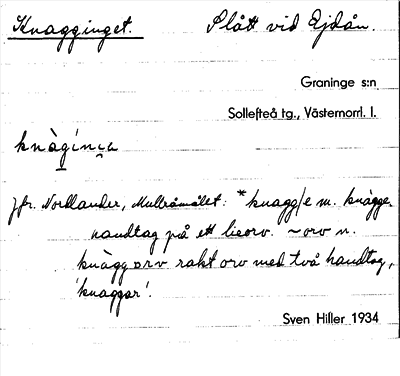 Knagginget. Slått vid Ejdån.
Graninge s:n
Sollefteå tg., Västernorrl. l.
knàgíṇa
Jfr. Nordlander, Multråmålet: *knagg/e m. knàgge
handtag på ett lieorv. ~orv n.
knàggorv rakt orv med två handtag,
'knaggar'.
Sven Hiller 1934